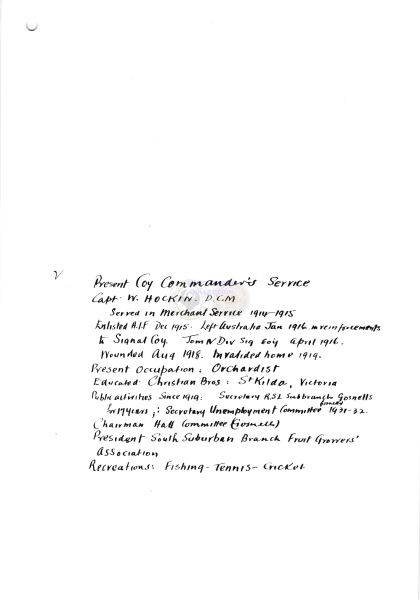 ✓
Present Coy Commander's Service
Capt. W. HOCKIN. D.C.M
Served in Merchant Service 1914-1915
Enlisted A.I.F Dec 1915. Left Australia Jan 1916 in reinforcements
to Signal Coy. Join IV Div Sig Coy April 1916.
Wounded Aug 1918. Invalided home 1919.
Present Occupation: Orchardist
Educated Christian Bros: St Kilda, Victoria
Public activities Since 1919: Secretary R.S.L Subbranch Gosnells
for 17 years; : Secretary Unemployment Committee 1931-32.
Chairman Hall Committee (Gosnells)
President South Suburban Branch Fruit Growers'
Association
Recreations: Fishing - Tennis - Cricket